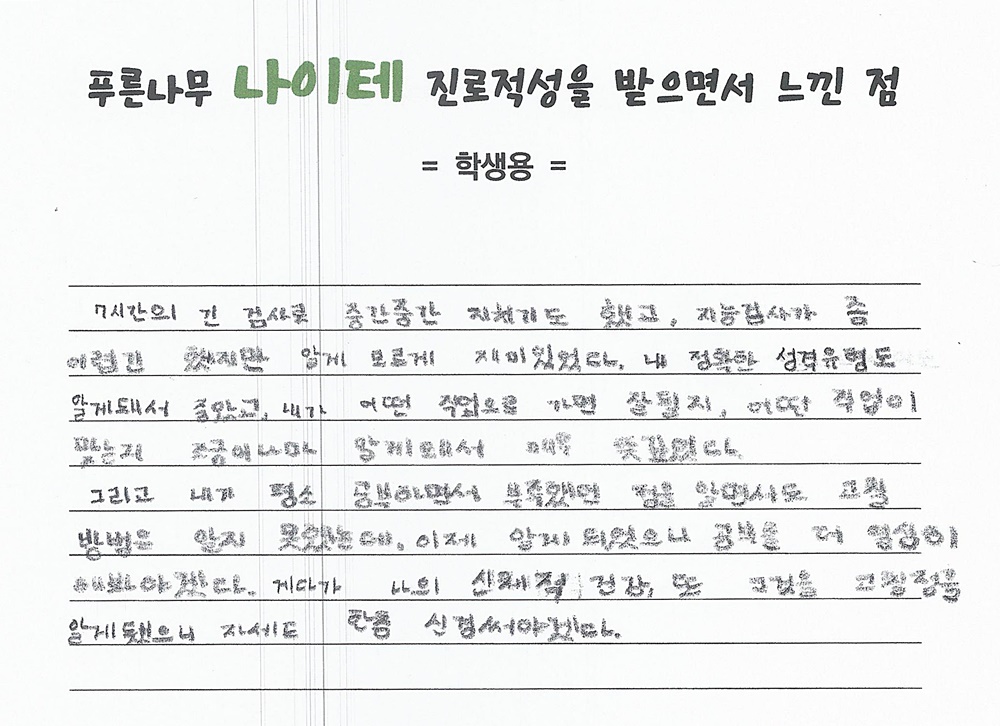 푸른나무 나이테 진로적성을 받으면서 느낀 점
= 학생용 =
7시간의 긴 검사로 중간중간 지쳐기도 했고, 지능검사가 좀
어렵긴 했지만 알게 모르게 재미있었다. 내 정확한 성격유형도
알게돼서 좋았고, 내가 어떤 직업으로 가면 잘될지, 어떤 직업이
맞는지 조금이나마 알게돼서 매우 뜻깊었다.
그리고 내가 평소 공부하면서 부족했던 점을 알면서도 고칠
방법은 알지 못했는데, 이제 알게 되었으니 공부을 더 열심히
해봐야겠다. 게다가 나의 신체적 건강, 또 그것을 고칠점을
알게됐으니 자세도 한층 신경써야겠다.